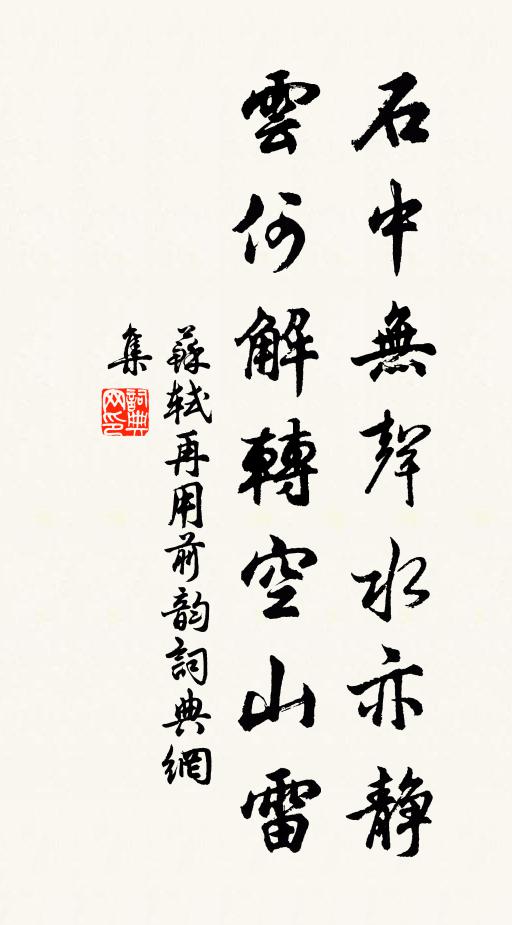 石中無聲水亦静
雲何解轉空山雷
蘇軾再用前韵詞典網
集
詞典
网印